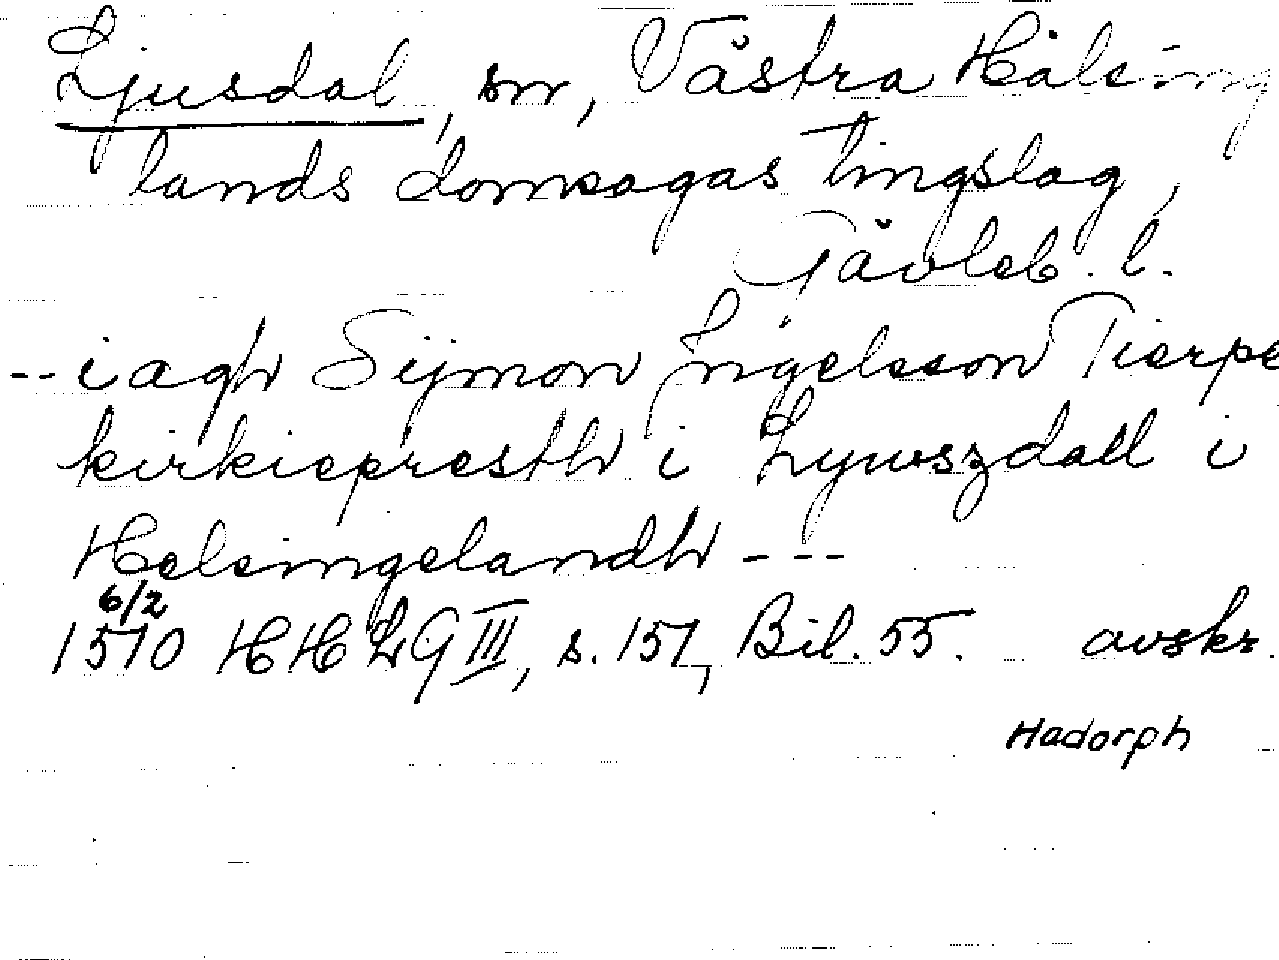 Ljusdal, sn, Västra Hälsing
lands domsagas tingslag,
Gävleb. l.
-- iagh Sijmon Jngelsson Tierpe
kirkiepresth i Lywszdall i
Helsingelandh ---
6/2
1510 HHLG III, s. 157, Bil. 55. avskr.
Hadorph